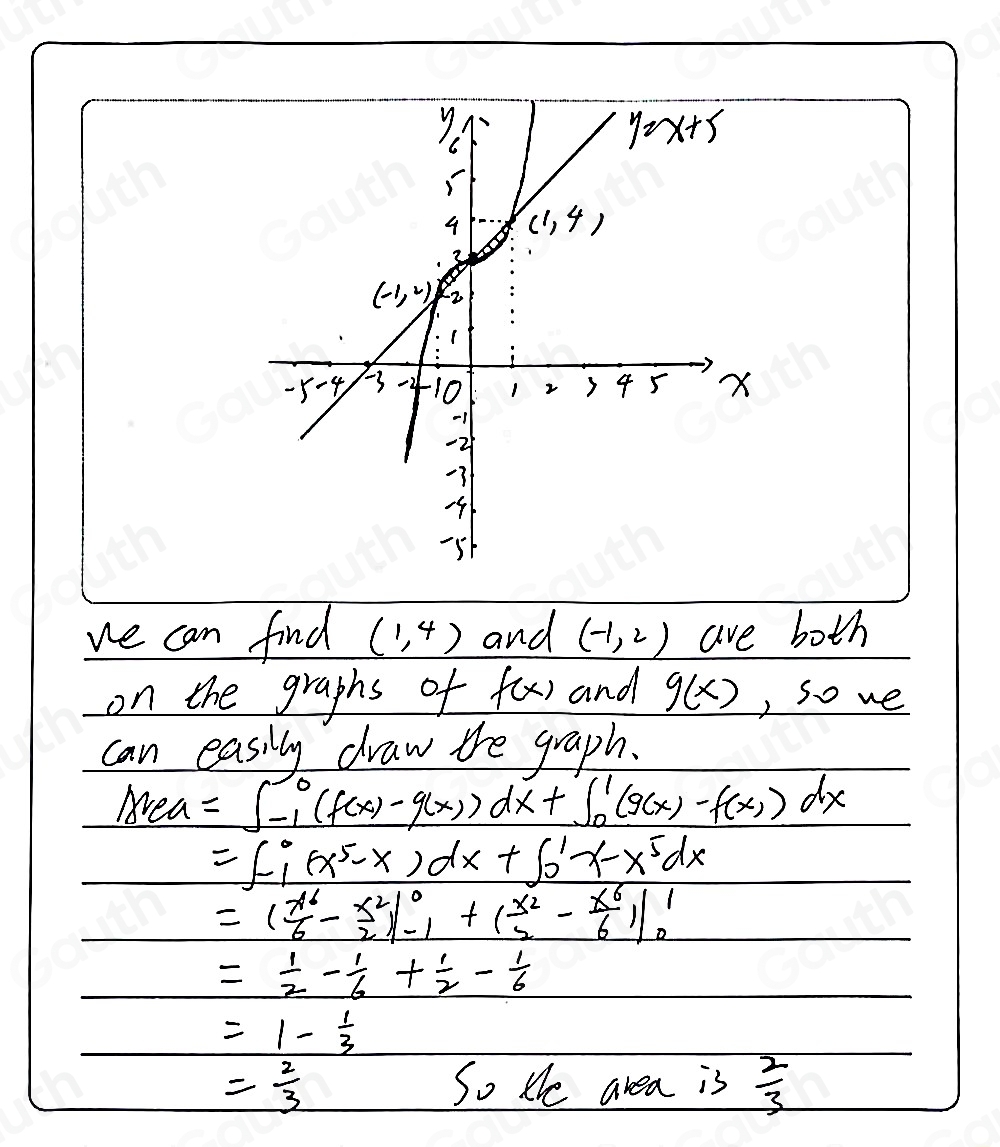 y
6
5
4
3
2
1
y=x+5
(1,4)
(-1,2)
-5 -4 -3 -2 -1 0 1 2 3 4 5 x
-1
-2
-3
-4
-5
we can find (1,4) and (-1,2) are both
on the graphs of f(x) and g(x), so we
can easily draw the graph.
Area = ∫₋₁⁰ (f(x) - g(x)) dx + ∫₀¹ (g(x) - f(x)) dx
= ∫₋₁⁰ (x⁵ - x) dx + ∫₀¹ x - x⁵ dx
= (x⁶/6 - x²/2)|₋₁⁰ + (x²/2 - x⁶/6)|₀¹
= 1/2 - 1/6 + 1/2 - 1/6
= 1 - 1/3
= 2/3 So the area is 2/3
Gauth